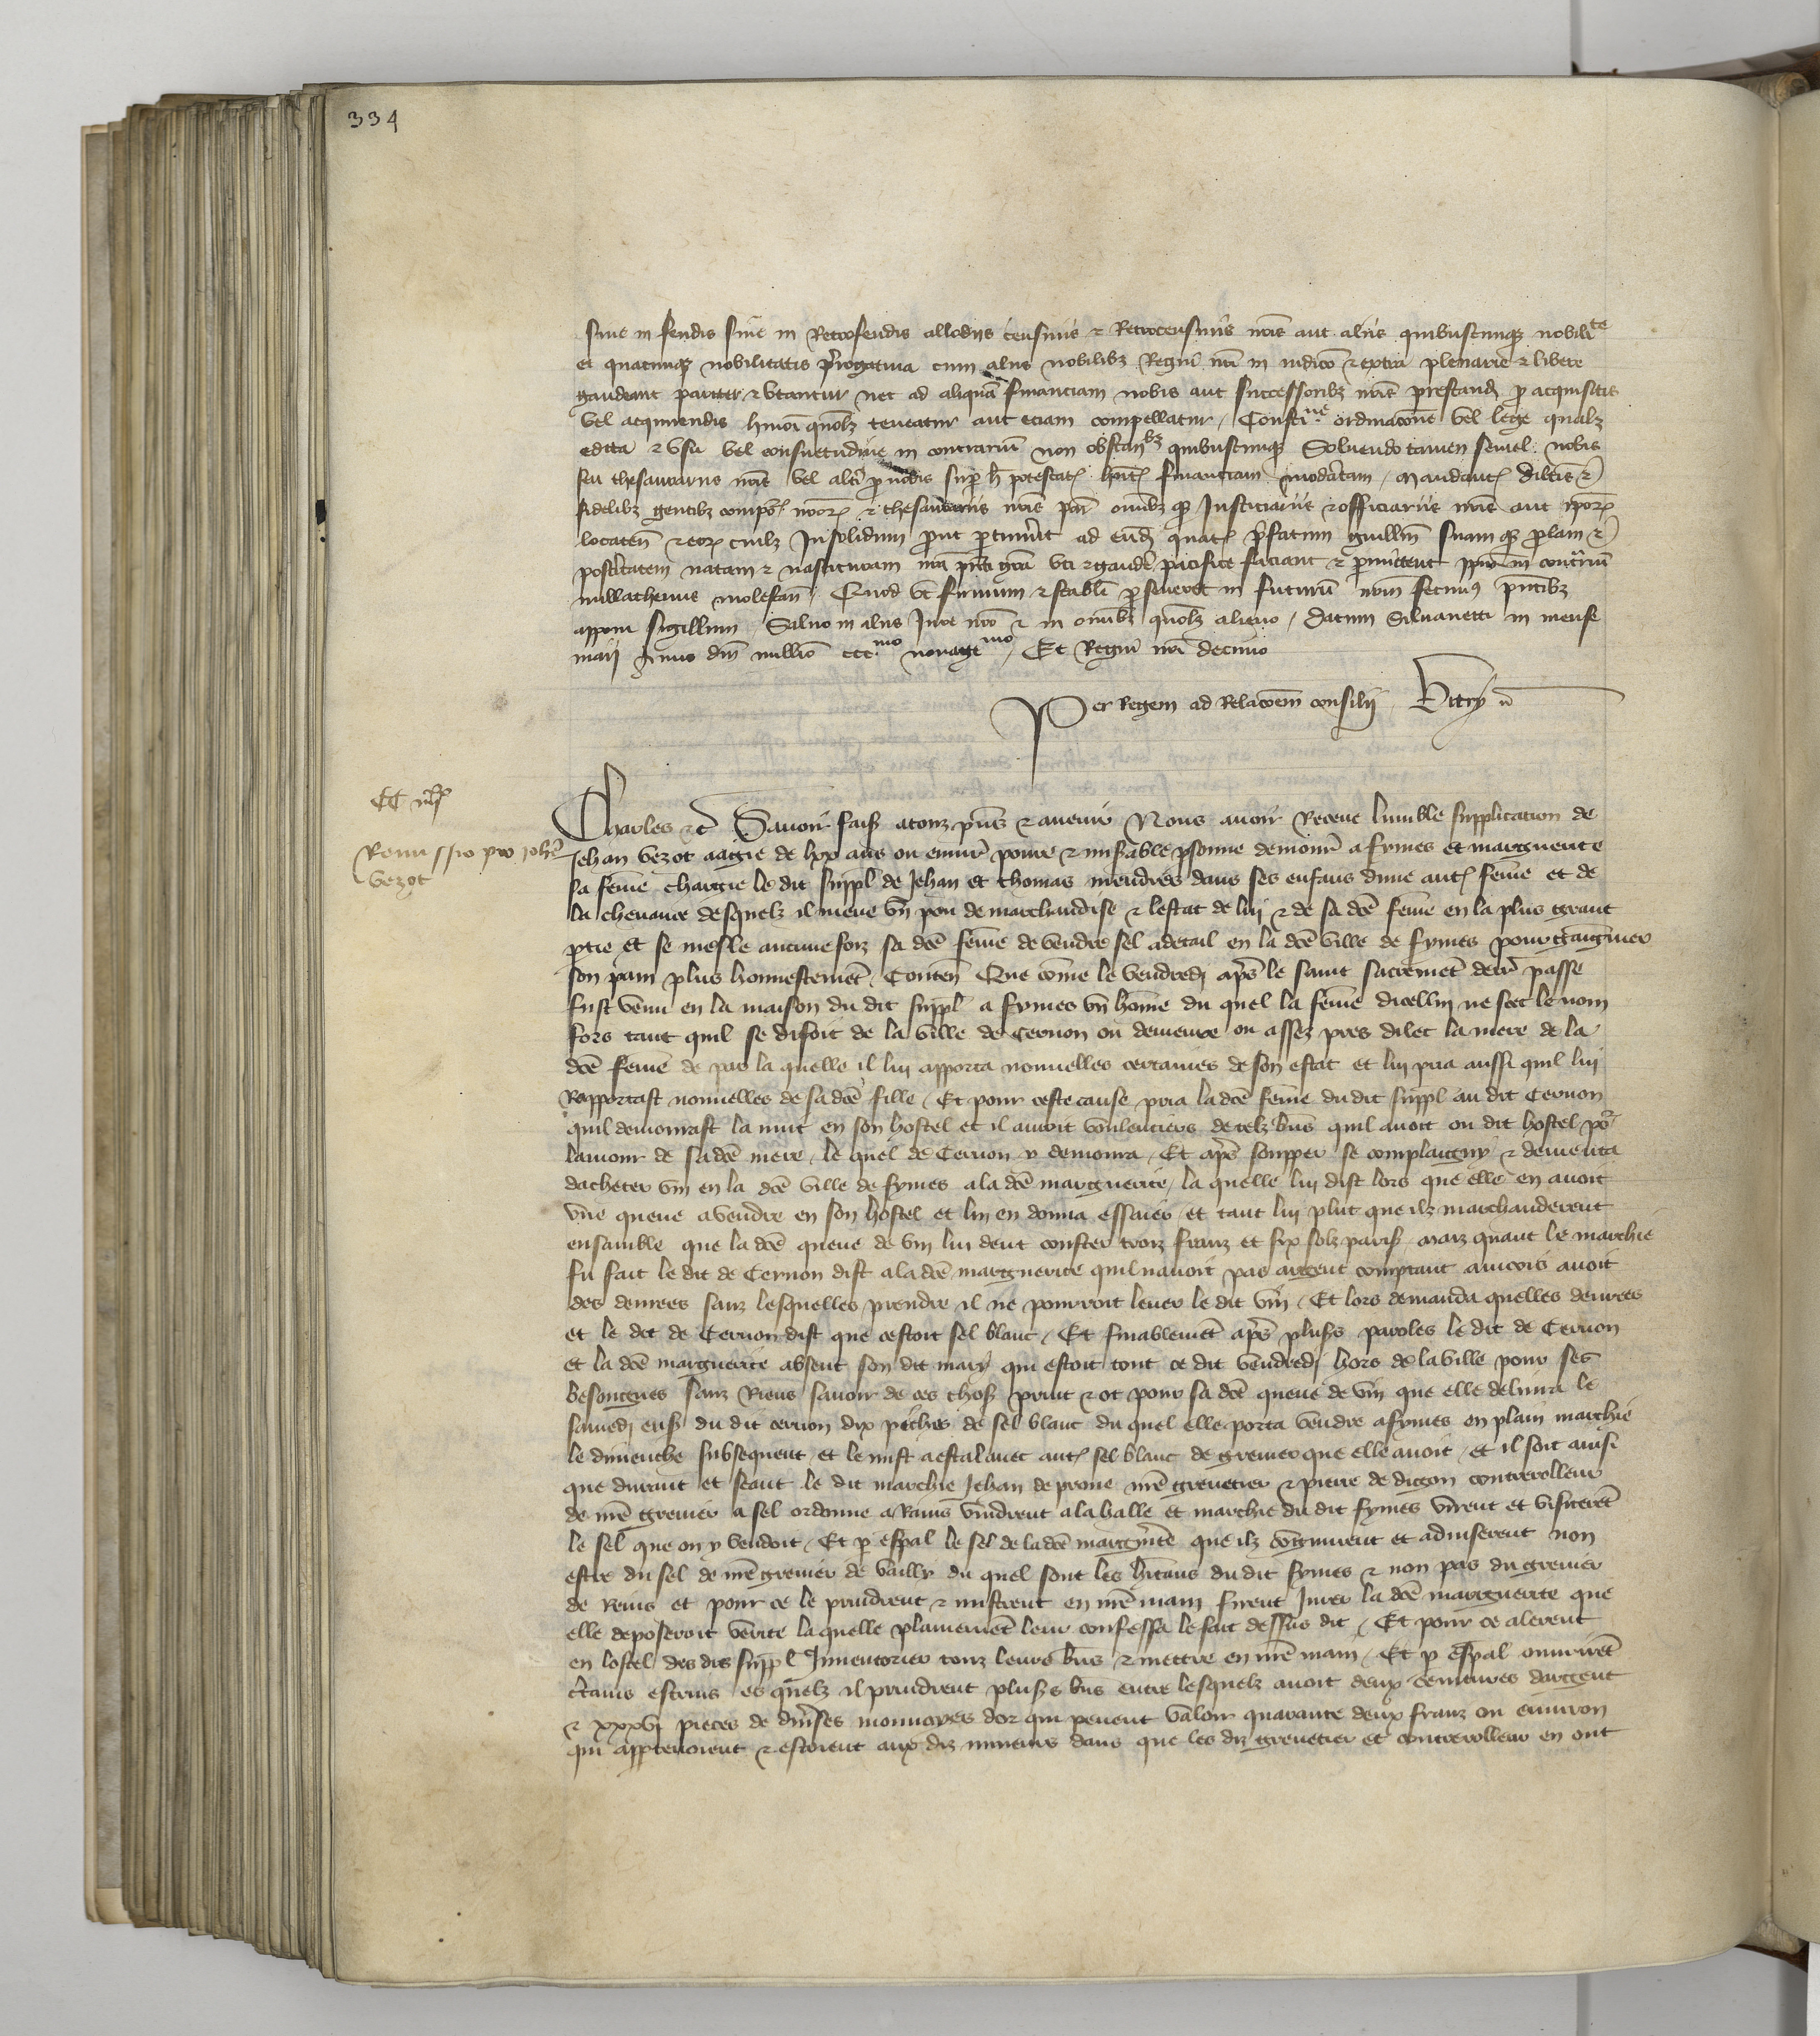 334
sive in feudis sive in Retrofeudis allodiis censivis ⁊ Retrocensivis nr̄is aut aliis quibuscumqz nobilite
et quacumqz nobilitatis p̄rogativa cum aliis nobilibz Regni nr̄i in iudicō ⁊ extra plenarie ⁊ libere
gaudeant pariter ⁊ utantur nec ad aliquā financiam nobis aut successoribz nr̄is prestand p acquisitis
vel acquirendis hmōi quōlz teneatur aut eciam compellatur / Consti.ne ordinacōne vel lege qualz
edicta ⁊ usu vel consuetudine in contrariū non obstanbz quibuscumqz Solvendo tamen semel nobis
seu thesaurariis nr̄is vel altī p nobis sup h̄ potestatē hn̄tē financiam modātam / Mandantē dilc̄is ⁊
fidelibz gentibz compō nr̄orē ⁊ thesaurariis nr̄is par omībz qz Justiciariis ⁊ officiariis nr̄is aut ip̄orē
locateñ ⁊ eorē cuilz Insolidum put ptinūit ad eūd quatē p̄fatum guillm̄ suam qz plam ⁊
postītatem natam ⁊ nascituram nr̄a pn̄ti gr̄a uti ⁊ gaudē pacifice faciant ⁊ pmittent ip̄os in contrīuū
nullathenus molestañ / Quod ut firmum ⁊ stabile pseveret in futurū nr̄m fecimꝰ pn̄tibz
apponi sigillum / Salvo in aliis Jure nr̄o ⁊ in omībz quōlz alieno / Datum Silvanetti in mense
maij Anno dn̄i millīo ccc.mo nonagēmo / Et Regni nr̄i decimo
Per Regem ad Relacōem consilij Vitry
Remissio pro Joh̄e
vezot
Charles ⁊c̄ Savoir faisz a touz p̄ns ⁊ avenir Nous avoir Receue lumble supplication de
Jehan vezot aagie de lxx ans ou envir̄ povre ⁊ misable psonne demour̄ a fymes et marguerite
sa fem̄e chargie le dit suppl̄ de Jehan et Thomas mendres dans ses enfans dune autē fem̄e et de
la chevance desquelz il mene un pou de marchandise ⁊ lestat de lui ⁊ de sa dc̄e fem̄e en la plus grant
ptie et se mesle aucune foiz sa dc̄e fem̄e de vendre sel a detail en la dc̄e ville de fymes pour gaigner
son pain plus honnestemēt / Conteñ Que com̄e le vendredi ap̄s le saint sacremēt derr̄ passe
fust venu en la maison du dit suppl̄ a fymes un hom̄e du quel la fem̄e dicellui ne scet le nom
fors tant quil se disoit de la ville de Cernon ou demeure ou assez pres dilec la mere de la
dc̄e fem̄e de par la quelle il lui apporta nouvelles certaines de son estat et lui pria aussi quil lui
Rapportast nouvelles de sa dc̄e fille / Et pour ceste cause pria la dc̄e fem̄e du dit suppl̄ au dit Cernon
quil demourast la nuit en son hostel et il auroit voulentiers de telz bn̄s quil avoit ou dit hostel por̄
lamour de sa dc̄e mere / le quel de Cernon y demoura / Et ap̄s soupper se complaigny ⁊ dementa
dacheter vin en la dc̄e ville de fymes a la dc̄e marguerite / la quelle lui dist lors que elle en avoit
une queue a vendre en son hostel et lui en donna essaier / et tant lui plut que ilz marchanderent
ensamble que la dc̄e queue de vin lui deut couster troiz franz et six solz paris / Maiz quant le marchie
fu fait le dit de Cernon dist a la dc̄e marguerite quil navoit pas argent comptant aincois avoit
des denrees sanz lesquelles prendre il ne pourroit lever le dit vin / Et lors demanda quelles denrees
et le dit de Cernon dist que cestoit sel blanc / Et finablemēt ap̄s plusrs paroles le dit de Cernon
et la dc̄e marguerite absent son dit mary qui estoit tout ce dit vendredi hors de la ville pour ses
besongnes sanz Riens savoir de ces chosz print ⁊ ot pour sa dc̄e queue de vin que elle delivra le
samedi ensz du dit cernon dix pichez de sel blanc du quel elle porta vendre a fymes en plain marchie
le dimenche subsequent / et le mist a estal avec autē sel blanc de grenier que elle avoit / et il soit ainsi
que durant et seant le dit marchie Jehan de prome nr̄e grenetier ⁊ pierre de digon contrerolleur
de nr̄e grenier a sel ordonne a Rains vindrent a la halle et marchie du dit fymes virent et visiterēt
le sel que on y vendoit / Et p esp̄al le sel de la dc̄e margūite que ilz congnurent et adviserent non
estre du sel de nr̄e grenier de vailly du quel sont les hītans du dit fymes ⁊ non pas du grenier
de Reins et pour ce le prindrent ⁊ mistrent en nr̄e main firent Jurer la dc̄e marguerite que
elle deposeroit verite la quelle plainemēt leur confessa le fait dessus dit / Et pour ce alerent
en lostel des dis suppl̄ Inventorier touz leurs bn̄s ⁊ mettre en nr̄e main / Et p esp̄al ouvrirēt
c̄tains escrins es quelz il prindrent plusrs bn̄s entre lesquelz avoit deux ceintures dargent
⁊ xxxvj pieces de div̄ses monnoyes dor qui pevent valoir quarante deux franz ou environ
qui apptenoient ⁊ estoient aux diz mineurs dans que les diz grenetier et contrerolleur en ont